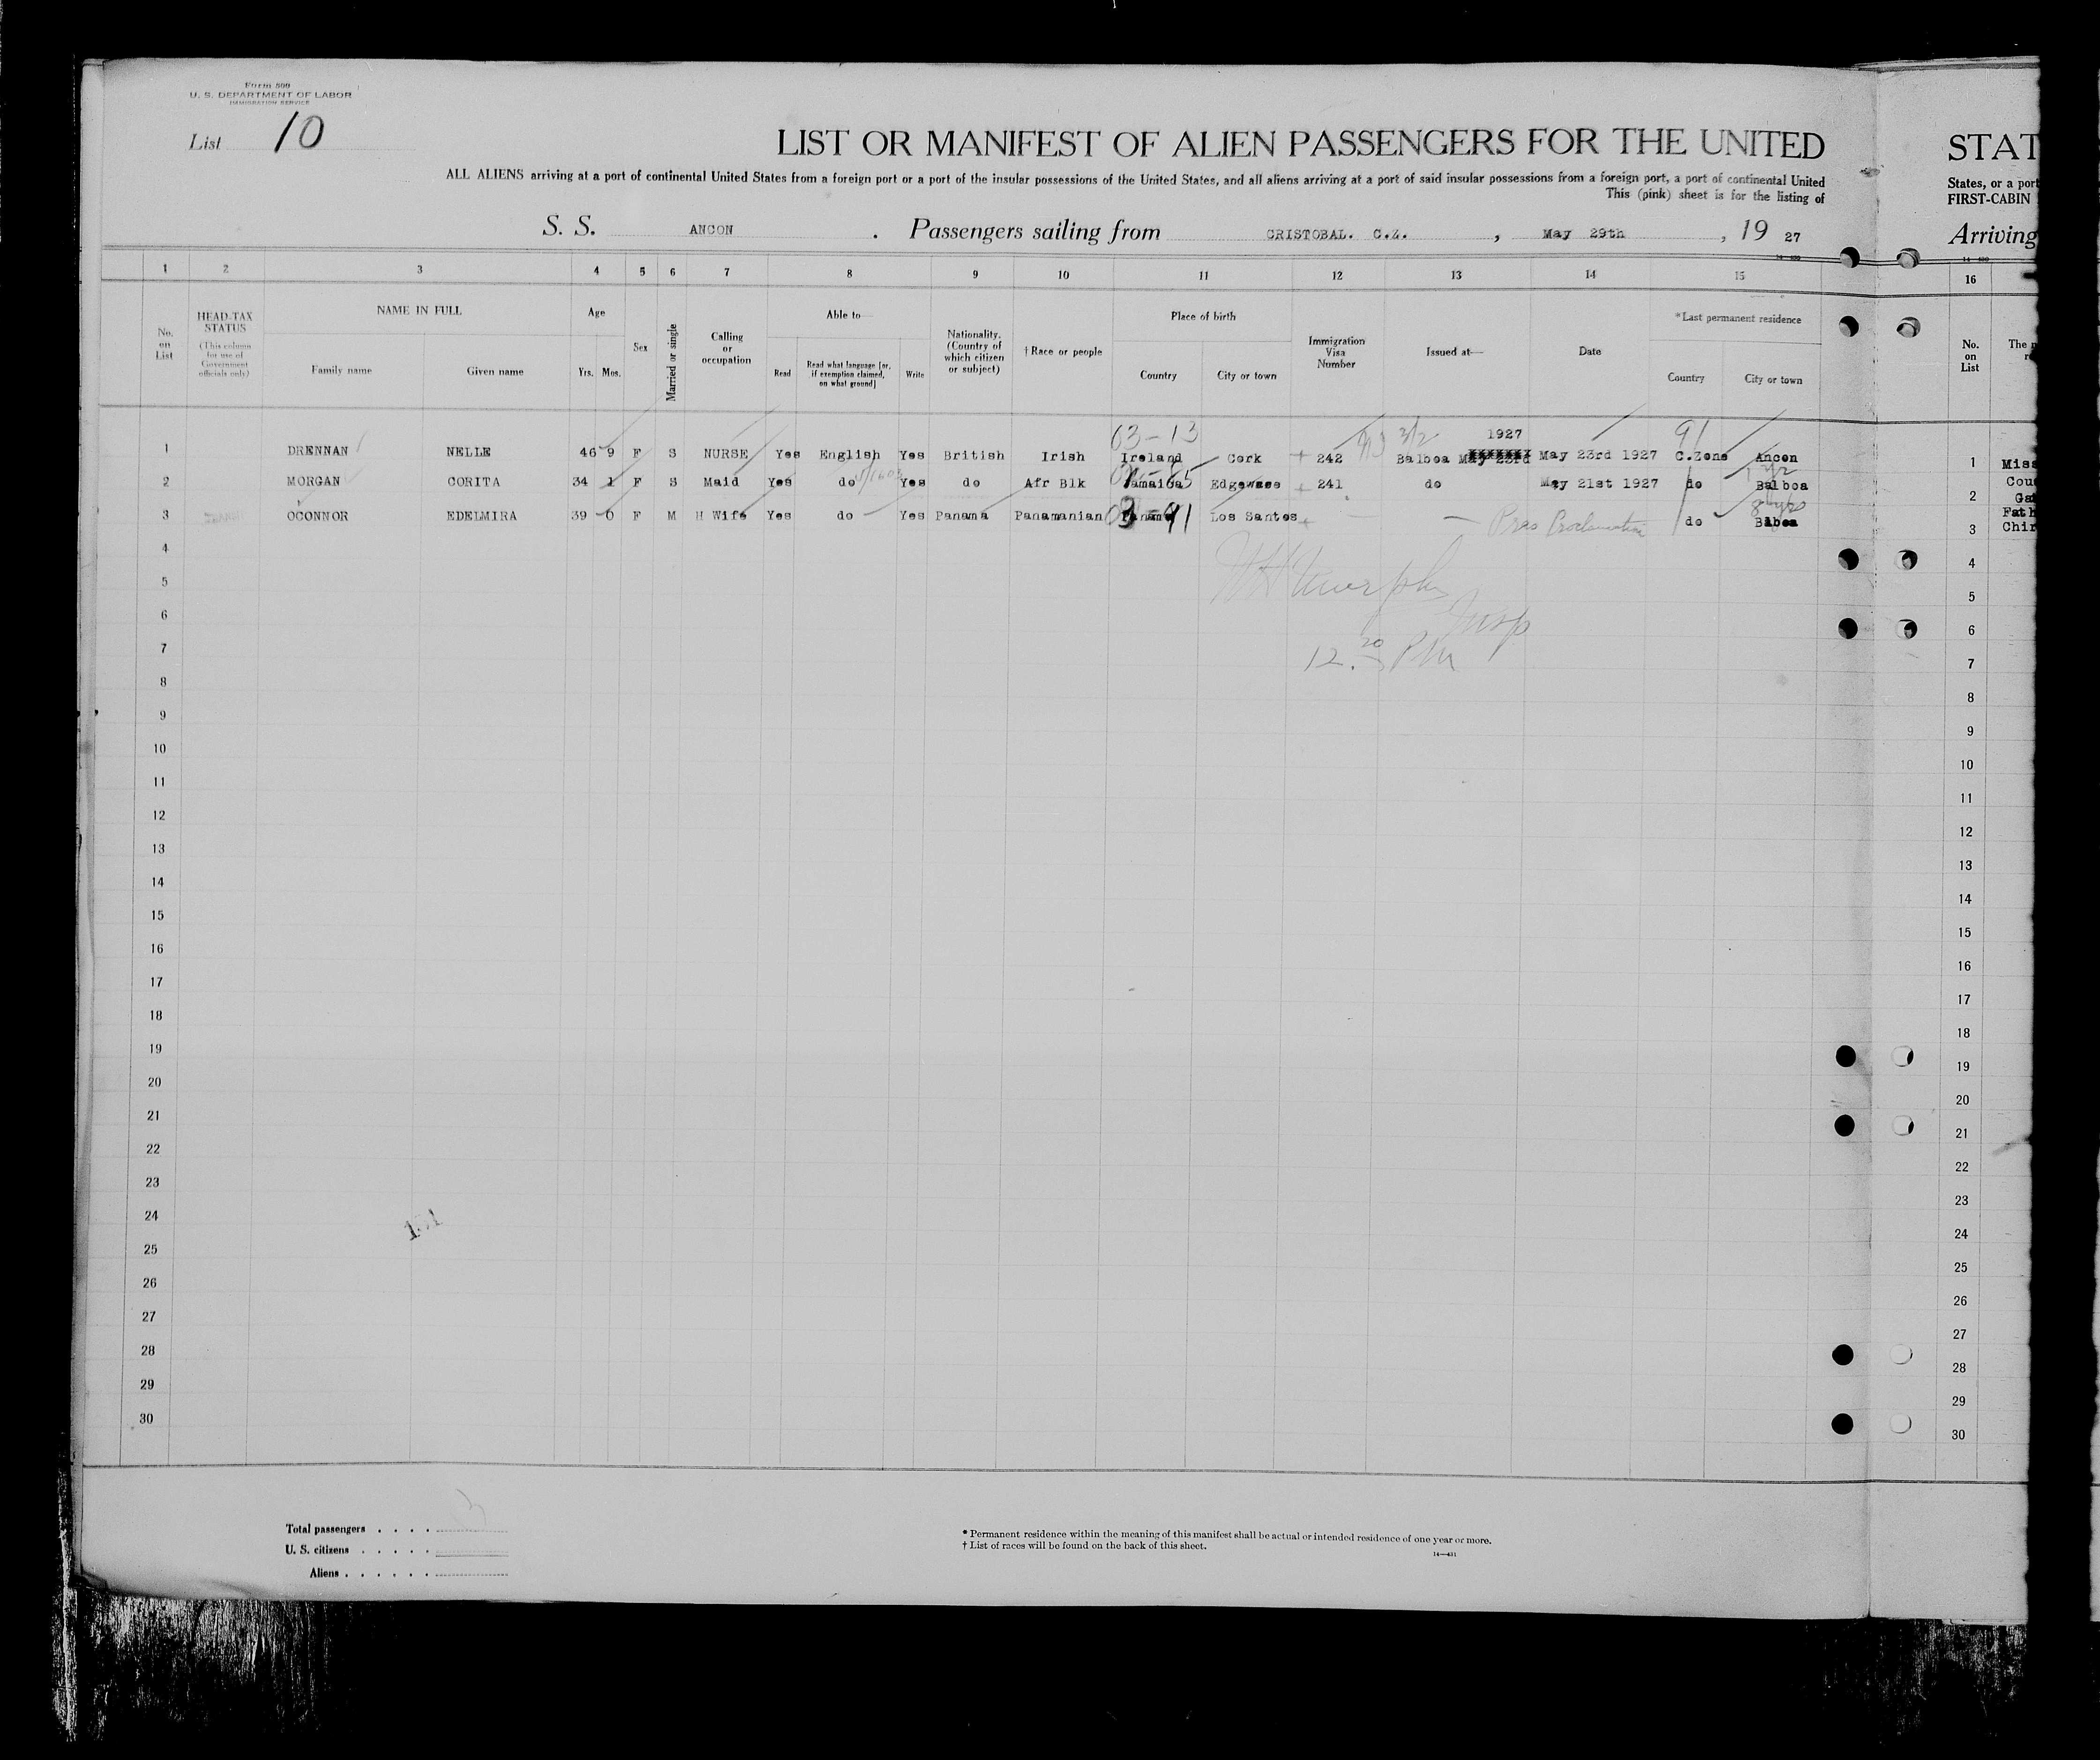 Form 500
U. S. DEPARTMENT OF LABOR
IMMIGRATION SERVICE
List 10
LIST OR MANIFEST OF ALIEN PASSENGERS FOR THE UNITED
STAT
ALL ALIENS arriving at a port of continental United States from a foreign port or a port of the insular possessions of the United States, and all aliens arriving at a port of said insular possessions from a foreign port, a port of continental United
States, or a port
This (pink) sheet is for the listing of
FIRST-CABIN
S. S. ANCON . Passengers sailing from CRISTOBAL. C.Z. , May 29th , 19 27
Arriving
1 2 3 4 5 6 7 8 9 10 11 12 13 14 15
16
No. on List
HEAD-TAX STATUS
(This column for use of Government officials only)
NAME IN FULL
Family name Given name
Age
Yrs. Mos.
Sex
Married or single
Calling or occupation
Able to—
Read
Read what language [or, if exemption claimed, on what ground]
Write
Nationality. (Country of which citizen or subject)
† Race or people
Place of birth
Country City or town
Immigration Visa Number
Issued at—
Date
*Last permanent residence
Country City or town
No. on List
The
03-13 3/2 1927 91
1 DRENNAN NELLE 46 9 F S NURSE Yes English Yes British Irish Ireland Cork 242 Balboa May 23rd May 23rd 1927 C.Zone Ancon
1 Miss
2 MORGAN CORITA 34 1 F S Maid Yes do Yes do Afr Blk Jamaica 241 do May 21st 1927 do Balboa
2 Cou
3 OCONNOR EDELMIRA 39 0 F M H Wife Yes do Yes Panama Panamanian Panama Los Santos Pres Proclamation do Blboa
Fath
3 Chir
W H Murphy
Insp
12.20 PM
4
5
6
7
8
9
10
11
12
13
14
15
16
17
18
19
20
21
22
23
24
25
26
27
28
29
30
4
5
6
7
8
9
10
11
12
13
14
15
16
17
18
19
20
21
22
23
24
25
26
27
28
29
30
Total passengers . . . . 3
U. S. citizens . . . . .
Aliens . . . . . .
* Permanent residence within the meaning of this manifest shall be actual or intended residence of one year or more.
† List of races will be found on the back of this sheet.
14—431